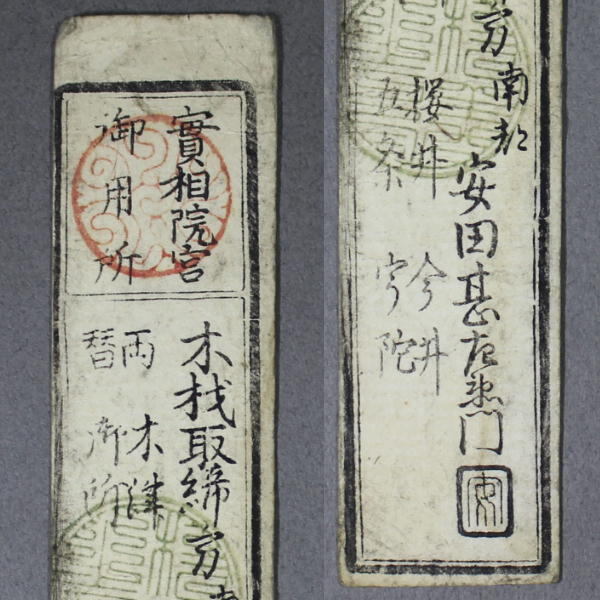 實相院宮
御用所
木材取締方
両替所
木津
南都
安田甚左衛門
櫻井 今井
五条 宇陀